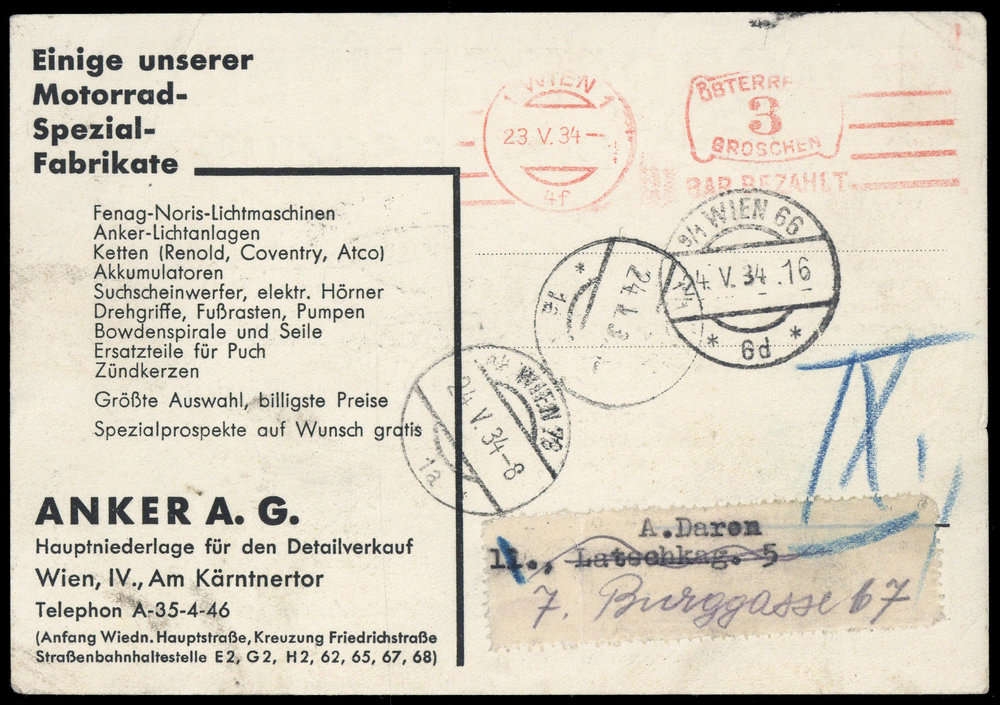 Einige unserer
Motorrad-
Spezial-
Fabrikate
Fenag-Noris-Lichtmaschinen
Anker-Lichtanlagen
Ketten (Renold, Coventry, Atco)
Akkumulatoren
Suchscheinwerfer, elektr. Hörner
Drehgriffe, Fußrasten, Pumpen
Bowdenspirale und Seile
Ersatzteile für Puch
Zündkerzen
Größte Auswahl, billigste Preise
Spezialprospekte auf Wunsch gratis
ANKER A. G.
Hauptniederlage für den Detailverkauf
Wien, IV., Am Kärntnertor
Telephon A-35-4-46
(Anfang Wiedn. Hauptstraße, Kreuzung Friedrichstraße
Straßenbahnhaltestelle E2, G2, H2, 62, 65, 67, 68)
1 WIEN 1
23. V. 34
4f
ÖSTERR
3
GROSCHEN
BAR BEZAHLT
9/1 WIEN 66
24. V. 34. 16
* 6d *
* 1e
24. V. 3
WIEN 78
24. V. 34-8
1a
IX.
A.Daron
11., Latschkag. 5
7. Burggasse 67